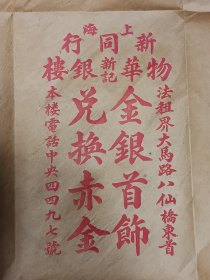 上海
新同行
物華新記銀樓
法租界大馬路八仙橋東首
金銀首飾
兌換赤金
本樓電話中央四四九七號